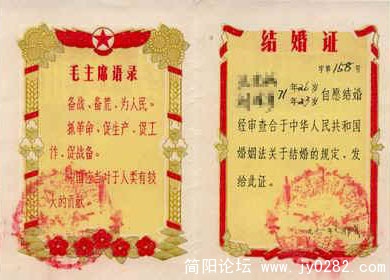 毛主席语录
备战、备荒、为人民。
抓革命、促生产、促工
作、促战备。
中国应当对于人类有较
大的贡献。
结婚证
字第158号
年26岁
71
年23岁
自愿结婚
经审查合于中华人民共和国
婚姻法关于结婚的规定，发
给此证。
简阳论坛 www.jy0282.com